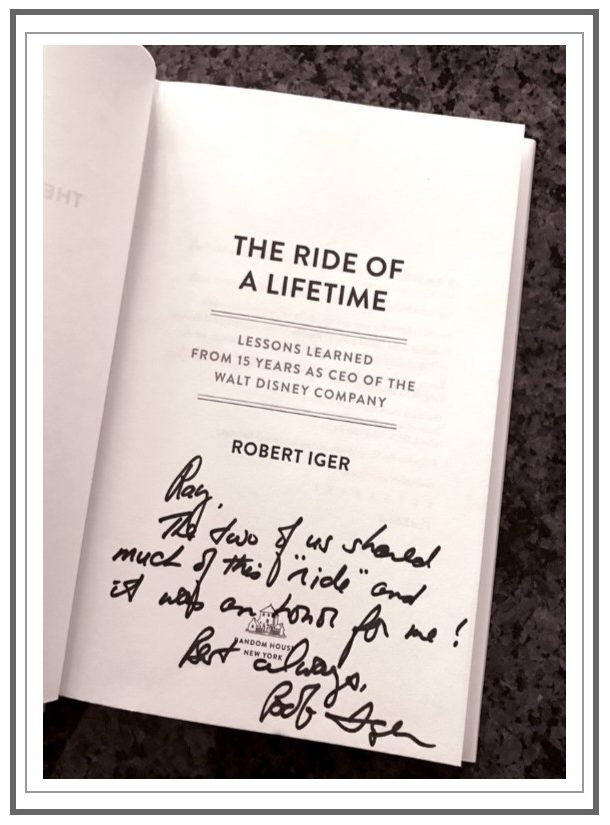 THE
THE RIDE OF
A LIFETIME
LESSONS LEARNED
FROM 15 YEARS AS CEO OF THE
WALT DISNEY COMPANY
ROBERT IGER
Ray,
The two of us shared
much of this "ride" and
it was an honor for me!
RANDOM HOUSE
NEW YORK
Best always,
Bob Iger